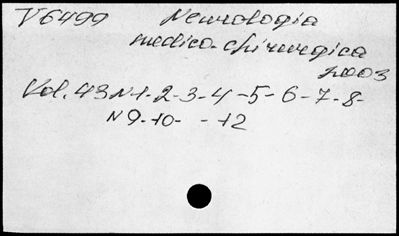 V6499 Neurologia
medico-chirurgica
2003
Vol. 43 N1-2-3-4-5-6-7-8-
N9-10- -12